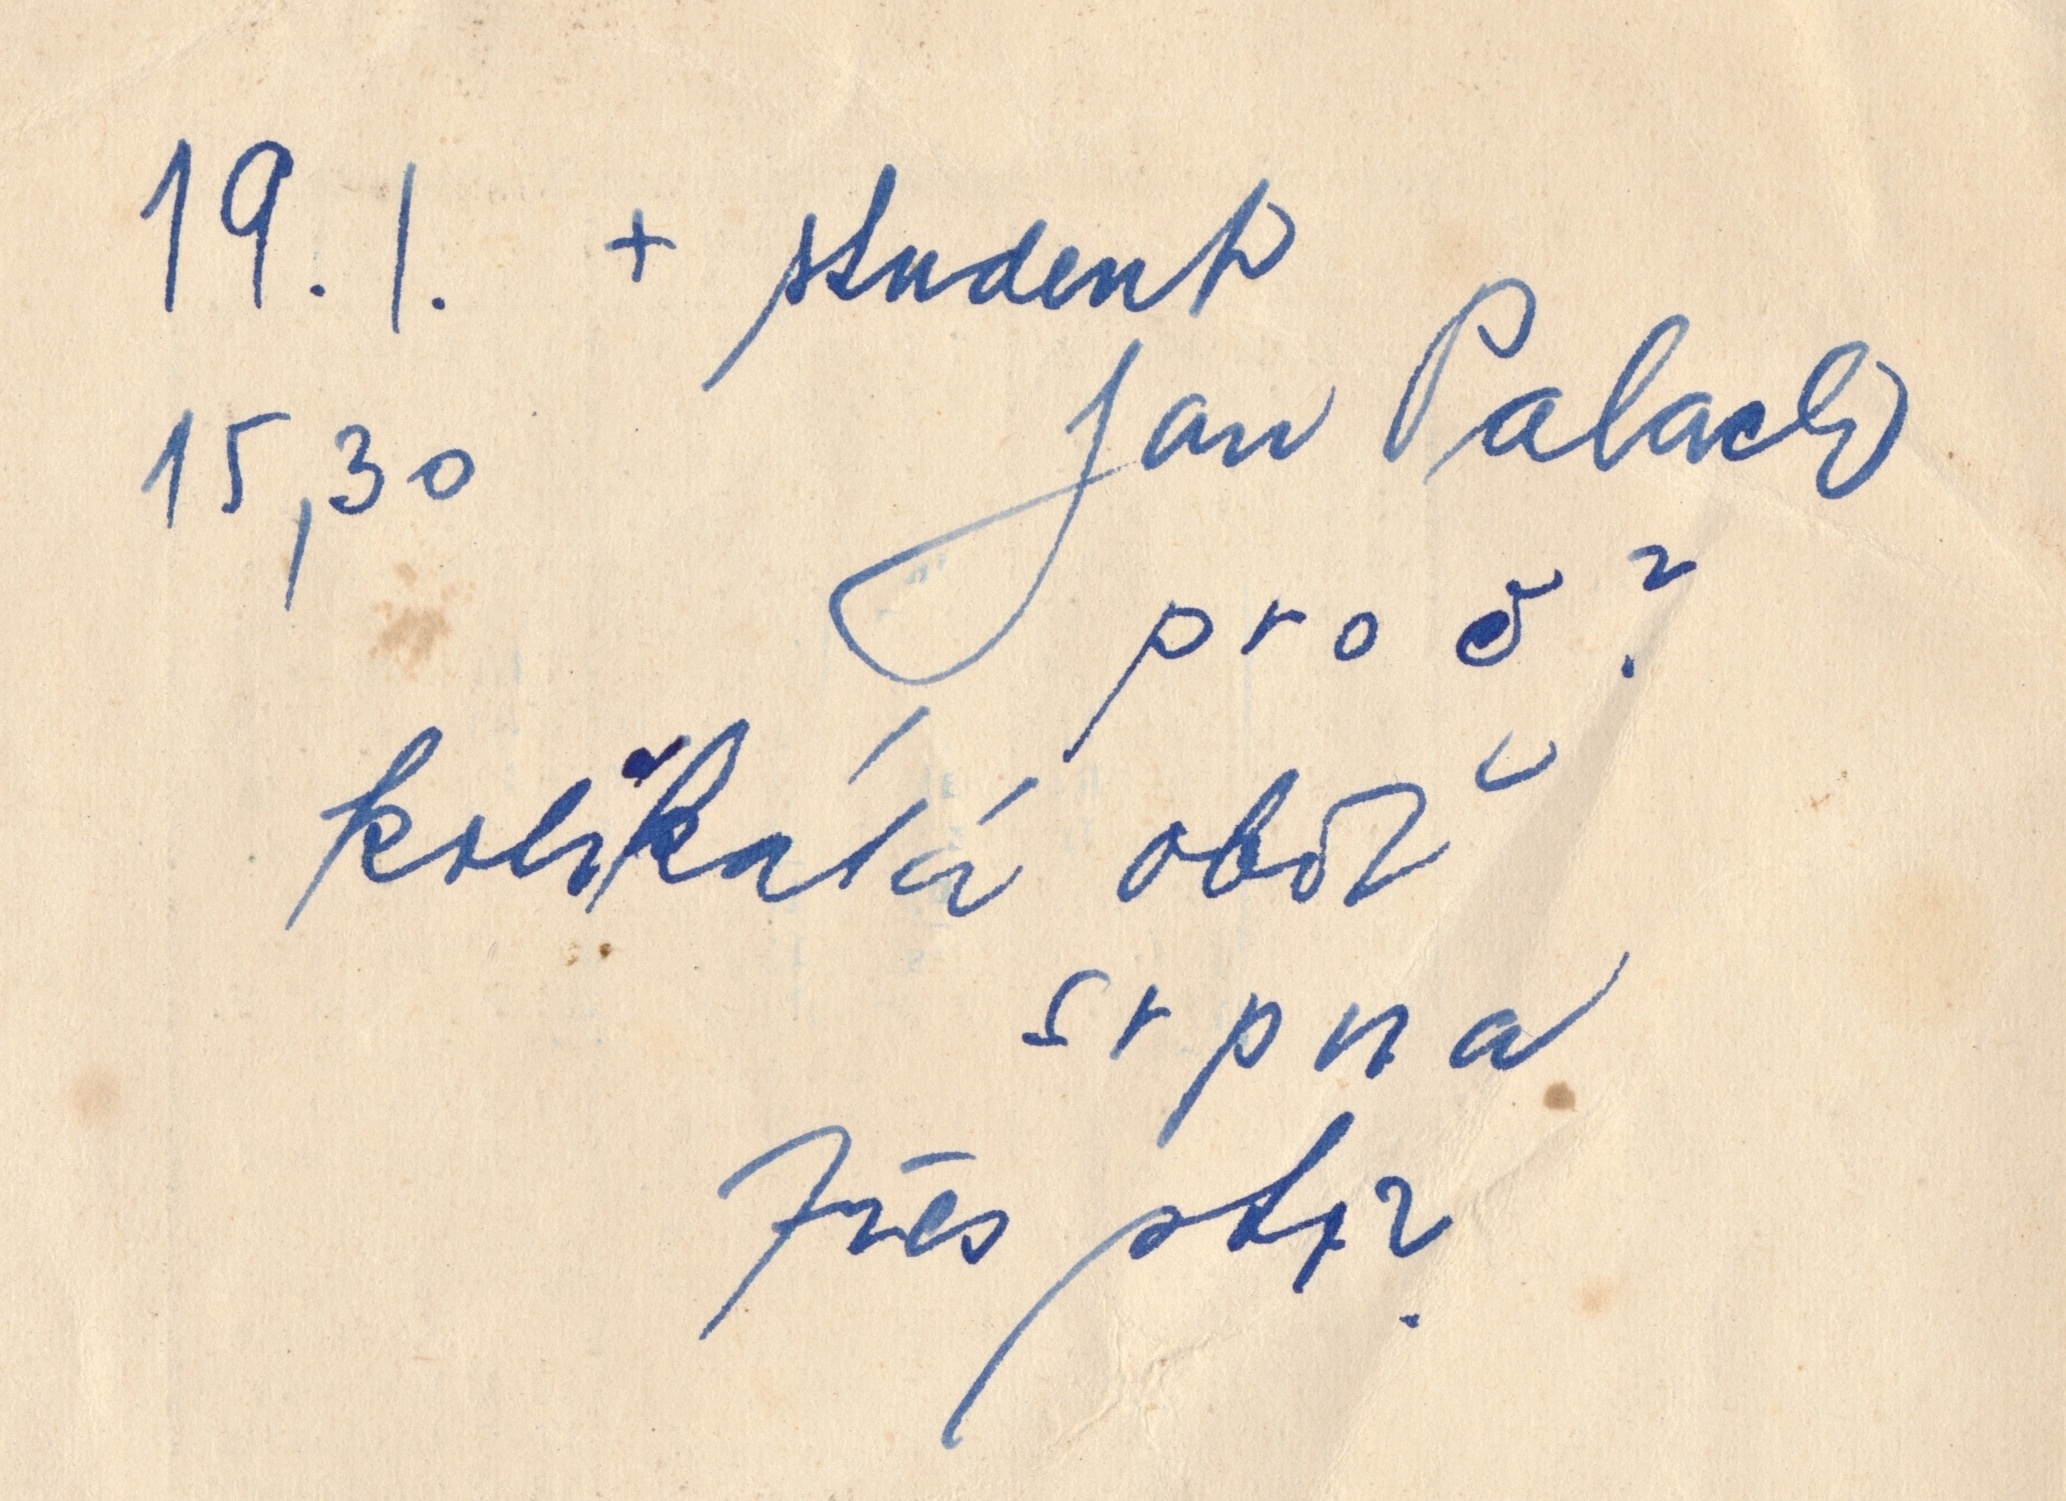 19. 1. + student
Jan Palach
15,30
proč?
kolikátá oběť
srpna